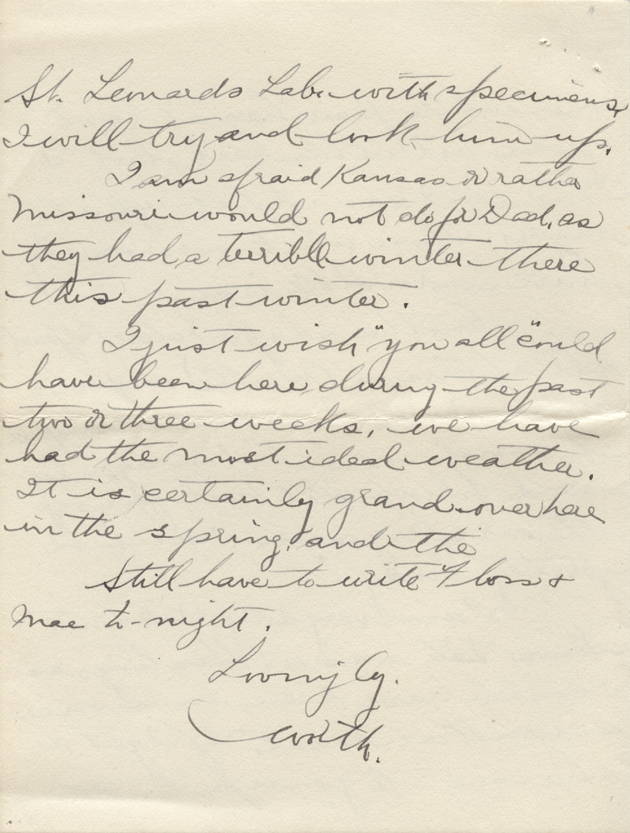 St. Leonards Lab. with specimens,
I will try and look him up.
I am afraid Kansas or rather
Missouri would not do for Dad, as
they had a terrible winter there
this past winter.
I just wish "you all" could
have been here during the past
two or three weeks, we have
had the most ideal weather.
It is certainly grand over here
in the spring, and the
Still have to write Floss &
Mae to-night.
Lovingly.
Worth.